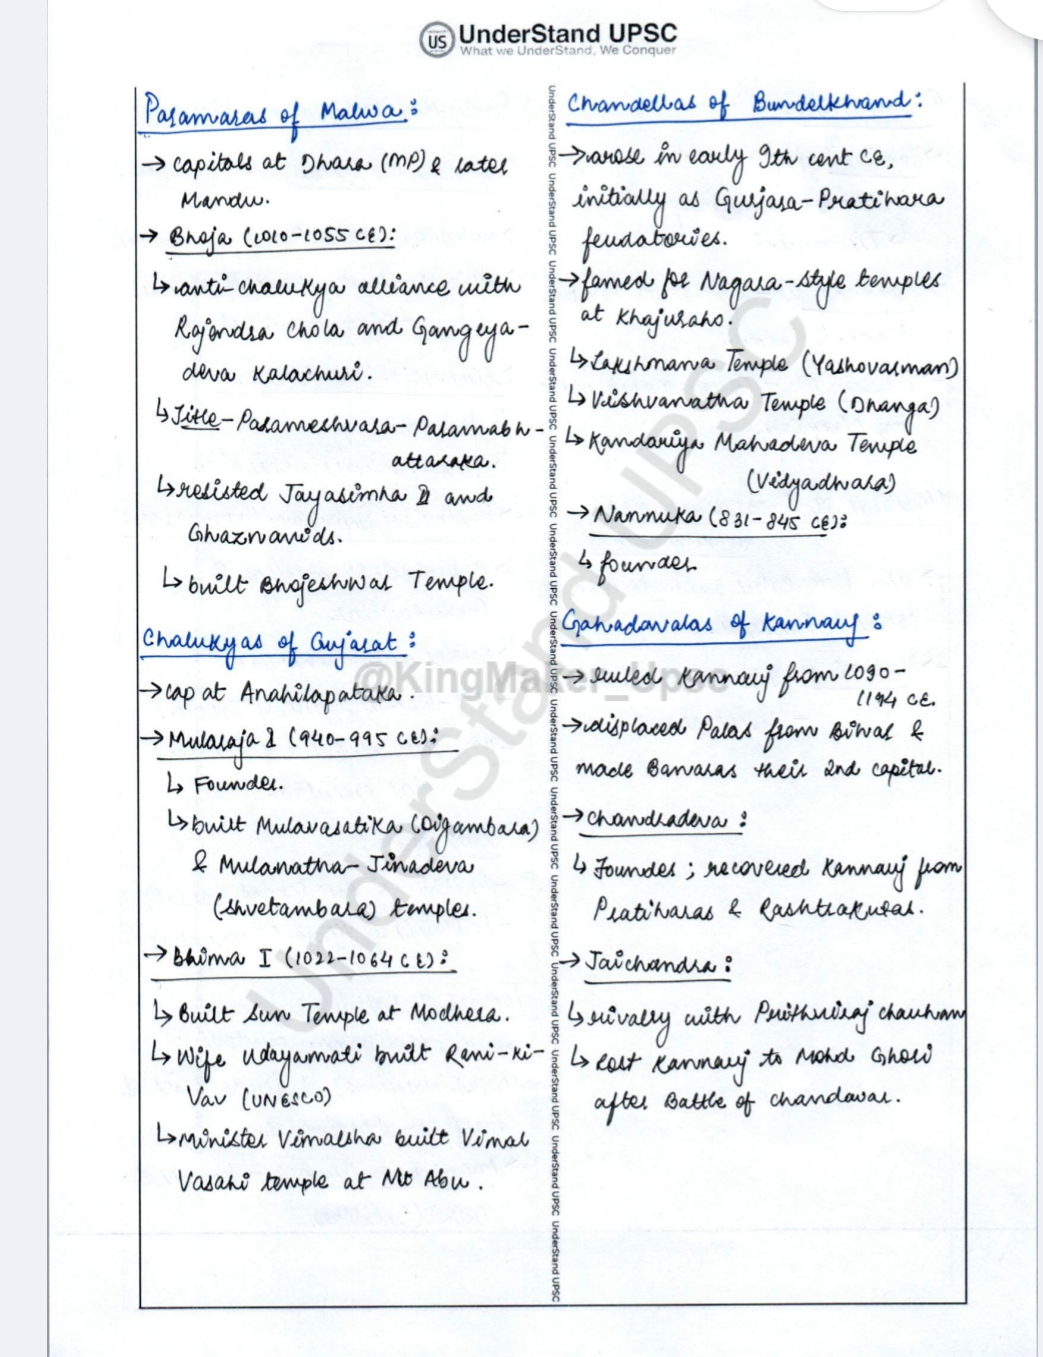 UnderStand UPSC
What we UnderStand, We Conquer
Paramaras of Malwa:
→ capitals at Dhara (MP) & later
Mandu.
→ Bhoja (1010-1055 CE):
↳ anti-chalukya alliance with
Rajendra Chola and Gangeya-
deva Kalachuri.
↳ Title - Parameshvara- Paramabh-
attaraka.
↳ resisted Jayasimha II and
Ghaznavids.
↳ built Bhojeshwar Temple.
Chalukyas of Gujarat:
→ cap at Anahilapataka.
→ Mularaja I (940-995 CE):
↳ Founder.
↳ built Mulavasatika (Digambara)
& Mulanatha-Jinadeva
(Shvetambara) temples.
→ Bhima I (1022-1064 CE):
↳ Built Sun Temple at Modhera.
↳ Wife Udayamati built Rani-ki-
Vav (UNESCO)
↳ Minister Vimalsha built Vimal
Vasahi temple at Mt Abu.
Chandellas of Bundelkhand:
→ arose in early 9th cent CE,
initially as Gurjara-Pratihara
feudatories.
→ famed for Nagara-style temples
at Khajuraho.
↳ Lakshmana Temple (Yashovarman)
↳ Vishvanatha Temple (Dhanga)
↳ Kandariya Mahadeva Temple
(Vidyadhara)
→ Nannuka (831-845 CE):
↳ founder
Gahadavalas of Kannauj:
→ ruled Kannauj from 1090-
1194 CE.
→ displaced Palas from Bihar &
made Banaras their 2nd capital.
→ Chandradeva:
↳ Founder; recovered Kannauj from
Pratiharas & Rashtrakutas.
→ Jaichandra:
↳ rivalry with Prithviraj chauhan
↳ lost Kannauj to Mohd Ghori
after Battle of chandawar.
UnderStand UPSC UnderStand UPSC UnderStand UPSC UnderStand UPSC UnderStand UPSC UnderStand UPSC UnderStand UPSC UnderStand UPSC UnderStand UPSC UnderStand UPSC UnderStand UPSC UnderStand UPSC UnderStand UPSC UnderStand UPSC
@KingMaker_Upsc
UnderStand UPSC